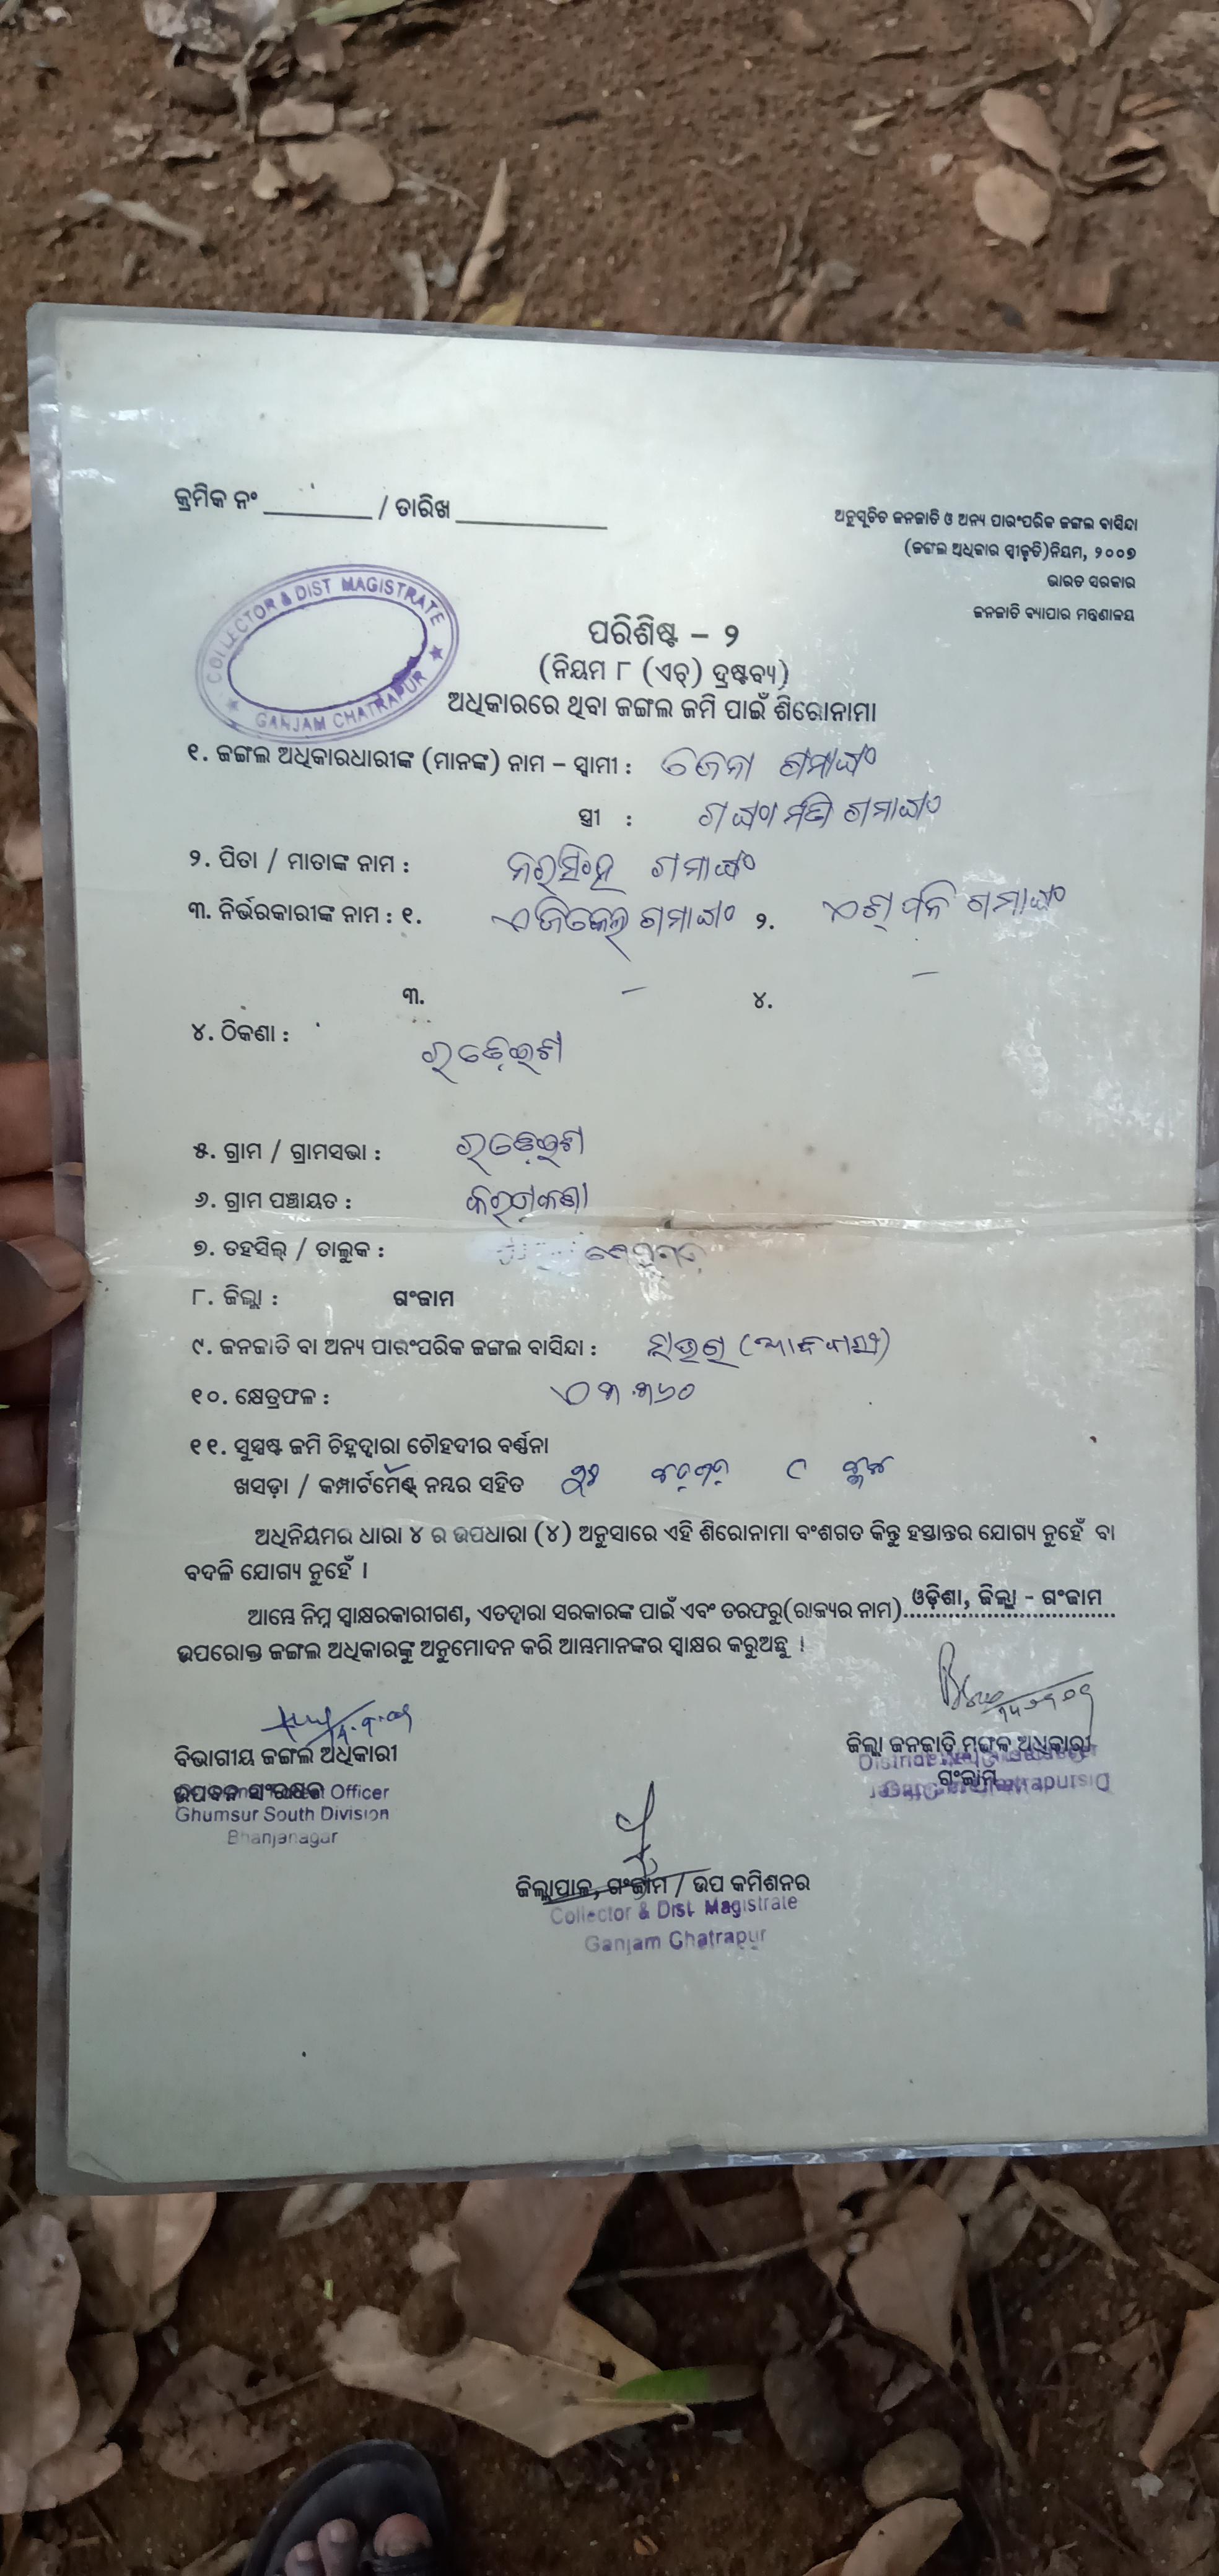 କ୍ରମିକ ନଂ ________ / ତାରିଖ ____________
ଅନୁସୂଚିତ ଜନଜାତି ଓ ଅନ୍ୟ ପାରଂପରିକ ଜଙ୍ଗଲ ବାସିନ୍ଦା
(ଜଙ୍ଗଲ ଅଧିକାର ସ୍ୱୀକୃତି)ନିୟମ, ୨୦୦୭
ଭାରତ ସରକାର
ଜନଜାତି ବ୍ୟାପାର ମନ୍ତ୍ରଣାଳୟ
COLLECTOR & DIST MAGISTRATE
★ GANJAM CHATRAPUR ★
ପରିଶିଷ୍ଟ – ୨
(ନିୟମ ୮ (ଏଚ୍) ଦ୍ରଷ୍ଟବ୍ୟ)
ଅଧିକାରରେ ଥିବା ଜଙ୍ଗଲ ଜମି ପାଇଁ ଶିରୋନାମା
୧. ଜଙ୍ଗଲ ଅଧିକାରଧାରୀଙ୍କ (ମାନଙ୍କ) ନାମ – ସ୍ୱାମୀ : ଜେନା ଗମାଙ୍ଗ
ସ୍ତ୍ରୀ : ଗମାଙ୍ଗ
୨. ପିତା / ମାତାଙ୍କ ନାମ : ନରସିଂହ ଗମାଙ୍ଗ
୩. ନିର୍ଭରକାରୀଙ୍କ ନାମ : ୧. ଏଜିକେଲ ଗମାଙ୍ଗ ୨. ଗମାଙ୍ଗ
୩. – ୪. –
୪. ଠିକଣା :
୫. ଗ୍ରାମ / ଗ୍ରାମସଭା :
୬. ଗ୍ରାମ ପଞ୍ଚାୟତ :
୭. ତହସିଲ୍ / ତାଲୁକ :
୮. ଜିଲ୍ଲା : ଗଂଜାମ
୯. ଜନଜାତି ବା ଅନ୍ୟ ପାରଂପରିକ ଜଙ୍ଗଲ ବାସିନ୍ଦା :
୧୦. କ୍ଷେତ୍ରଫଳ : ଏ ୩.୩୬୦
୧୧. ସୁସ୍ପଷ୍ଟ ଜମି ଚିହ୍ନଦ୍ୱାରା ଚୌହଦୀର ବର୍ଣ୍ଣନା
ଖସଡ଼ା / କମ୍ପାର୍ଟମେଣ୍ଟ୍ ନମ୍ବର ସହିତ
ଅଧିନିୟମର ଧାରା ୪ ର ଉପଧାରା (୪) ଅନୁସାରେ ଏହି ଶିରୋନାମା ବଂଶଗତ କିନ୍ତୁ ହସ୍ତାନ୍ତର ଯୋଗ୍ୟ ନୁହେଁ ବା
ବଦଳି ଯୋଗ୍ୟ ନୁହେଁ ।
ଆମ୍ଭେ ନିମ୍ନ ସ୍ୱାକ୍ଷରକାରୀଗଣ, ଏତଦ୍ୱାରା ସରକାରଙ୍କ ପାଇଁ ଏବଂ ତରଫରୁ(ରାଜ୍ୟର ନାମ) ଓଡ଼ିଶା, ଜିଲ୍ଲା - ଗଂଜାମ
ଉପରୋକ୍ତ ଜଙ୍ଗଲ ଅଧିକାରଙ୍କୁ ଅନୁମୋଦନ କରି ଆମ୍ଭମାନଙ୍କର ସ୍ୱାକ୍ଷର କରୁଅଛୁ ।
ବିଭାଗୀୟ ଜଙ୍ଗଲ ଅଧିକାରୀ
ଉପବନ ସଂରକ୍ଷକ
Officer
Ghumsur South Division
Bhanjanagar
ଜିଲ୍ଲା ଜନଜାତି ମଙ୍ଗଳ ଅଧିକାରୀ
ଗଂଜାମ
ଜିଲ୍ଲାପାଳ, ଗଂଜାମ / ଉପ କମିଶନର
Collector & Dist. Magistrate
Ganjam Chatrapur